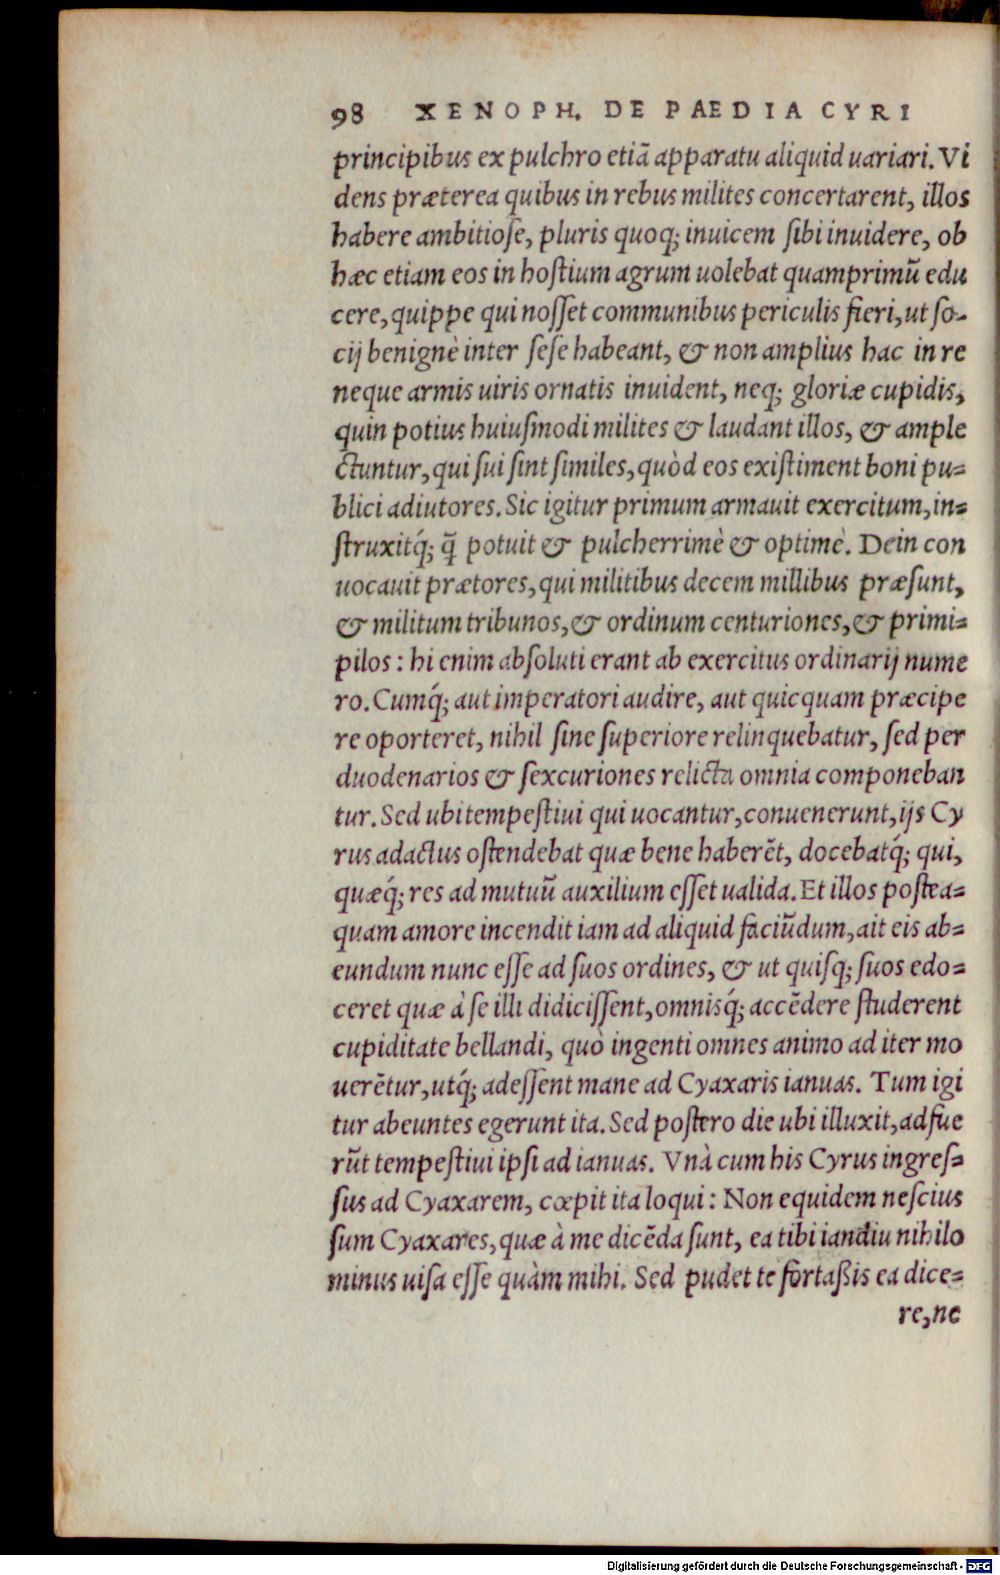 98 XENOPH. DE PAEDIA CYRI
principibus ex pulchro etiā apparatu aliquid uariari. Vi
dens præterea quibus in rebus milites concertarent, illos
habere ambitiose, pluris quoq; inuicem sibi inuidere, ob
hæc etiam eos in hostium agrum uolebat quamprimū edu
cere, quippe qui nosset communibus periculis fieri, ut so-
cij benignè inter sese habeant, & non amplius hac in re
neque armis uiris ornatis inuident, neq; gloriæ cupidis,
quin potius huiusmodi milites & laudant illos, & ample
ctuntur, qui sui sint similes, quòd eos existiment boni pu=
blici adiutores. Sic igitur primum armauit exercitum, in=
struxitq́; q̄ potuit & pulcherrimè & optimè. Dein con
uocauit prætores, qui militibus decem millibus præsunt,
& militum tribunos, & ordinum centuriones, & primi=
pilos: hi enim absoluti erant ab exercitus ordinarij nume
ro. Cumq́; aut imperatori audire, aut quicquam præcipe
re oporteret, nihil sine superiore relinquebatur, sed per
duodenarios & sexcuriones relicta omnia componeban
tur. Sed ubi tempestiui qui uocantur, conuenerunt, ijs Cy
rus adactus ostendebat quæ bene haberēt, docebatq́; qui,
quæq́; res ad mutuū auxilium esset ualida. Et illos postea=
quam amore incendit iam ad aliquid faciūdum, ait eis ab=
eundum nunc esse ad suos ordines, & ut quisq; suos edo=
ceret quæ à se illi didicissent, omnisq́; accēdere studerent
cupiditate bellandi, quò ingenti omnes animo ad iter mo
uerētur, utq́; adessent mane ad Cyaxaris ianuas. Tum igi
tur abeuntes egerunt ita. Sed postero die ubi illuxit, adfue
rūt tempestiui ipsi ad ianuas. Vnà cum his Cyrus ingres=
sus ad Cyaxarem, cœpit ita loqui: Non equidem nescius
sum Cyaxares, quæ à me dicēda sunt, ea tibi iandiu nihilo
minus uisa esse quàm mihi. Sed pudet te fortaßis ea dice=
re, ne
Digitalisierung gefördert durch die Deutsche Forschungsgemeinschaft - DFG